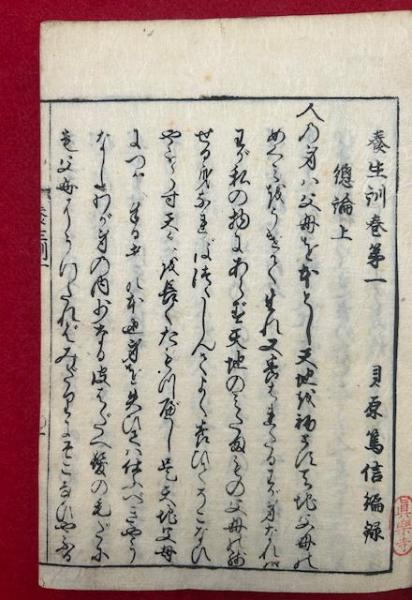 養生訓巻第一
貝原篤信編録
總論上
人の身ハ父母を本とし天地を初とす天地父母の
めぐミをうけて生れ又養はれたるわが身なれハ
わが私の物にあらず天地のミたまもの父母の残
せる身なれば つつしんでよく養ひてそこなひ
やぶらず天年を長くたもつべし是天地父母
につかへ奉る孝の本也身を失ひてハ仕ふべきやう
なしわが身の内少なる皮はだへ髪の毛だに
も父母にうけたればみだりにそこなひやぶる
眞樂寺